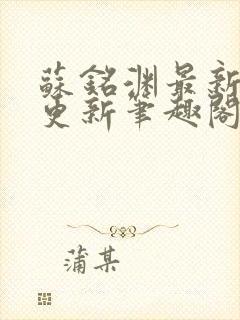 蘇銘渊最新
更新筆趣閣
蒲某